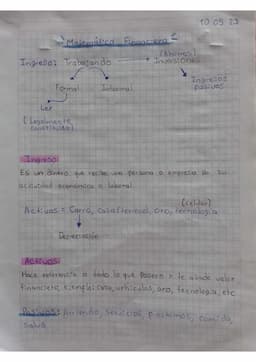 10 05 23
Matemática Financiera
Ingreso: Trabajando → Inversiones
Formal Informal Ingresos pasivos
Ley
(Legalmente constituido)
Ingreso
Es un dinero que recibe una persona o empresa de su
actividad económica o laboral.
(celular)
Activos = Carro, casa/terreno, oro, tecnología
Depreciación
Activos:
Hace referencia a todo lo que Posees y te añade valor
financiero, Ejemplo: casa, vehículos, oro, tecnología, etc
Pasivos: Arriendo, servicios, préstamos, comida,
salud